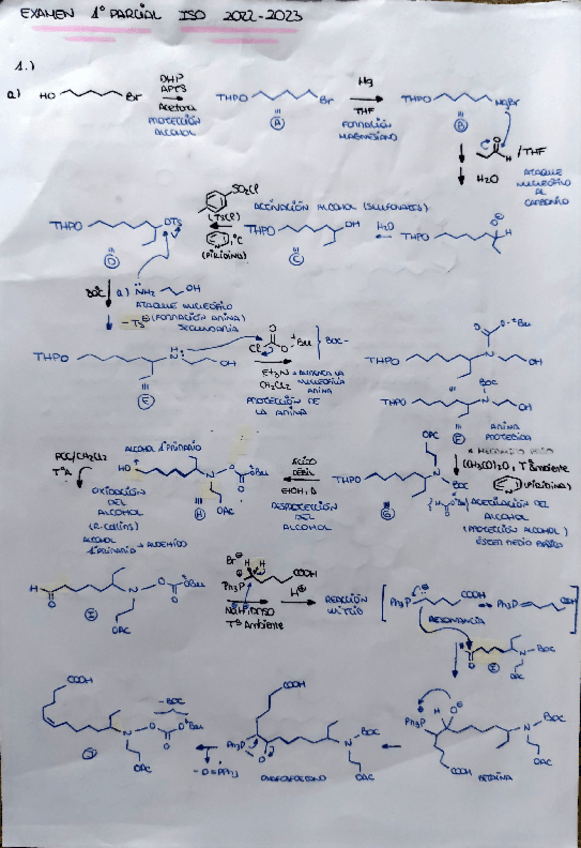 EXAMEN 1º PARCIAL ISO 2022-2023
1.)
a) HO Br DHP APTS Acetona PROTECCIÓN ALCOHOL THPO Br A Mg THF FORMACIÓN MAGNESIANO THPO MgBr B
O H / THF
H2O
ATAQUE NUCLEÓFILO AL CARBONILO
THPO OTS D
SO2Cl (TsCl) ºC (PIRIDINA)
ACTIVACIÓN ALCOHOL (SULFONATOS)
THPO OH C H2O THPO O H
80ºC a) NH2 OH
ATAQUE NUCLEÓFILO
(FORMACIÓN AMINA) SECUNDARIA
- TS
THPO N H OH E
Cl O O tBu BOC-
Et3N
CH2Cl2
PROTECCIÓN DE LA AMINA
O O - tBu
THPO N OH
BOC
THPO N OH F
AMINA PROTEGIDA
(CH3CO)2O, Tª Ambiente
(PIRIDINA)
ACETILACIÓN DEL ALCOHOL
(PROTECCIÓN ALCOHOL)
ÉSTER MEDIO BÁSICO
OAC
THPO N BOC G
ÁCIDO DÉBIL
EtOH, Δ
DESPROTECCIÓN DEL ALCOHOL
ALCOHOL 1º PRIMARIO
HO N O O OtBu OAC H
PCC/CH2Cl2
TªA
OXIDACIÓN DEL ALCOHOL
(R. Collins)
ALCOHOL 1º PRIMARIO → ALDEHÍDO
H O N O O OtBu OAC I
Br H H Ph3P COOH
NaH/DMSO
Tª Ambiente
H
REACCIÓN WITTIG
Ph3P COOH ↔ Ph3P COOH
RESONANCIA
O N BOC OAC I
Ph3P H O N BOC OAC COOH
BETAÍNA
COOH Ph3P O N BOC OAC
OXAFOSFETANO
- O=PPh3
COOH N O O OtBu OAC J
- BOC